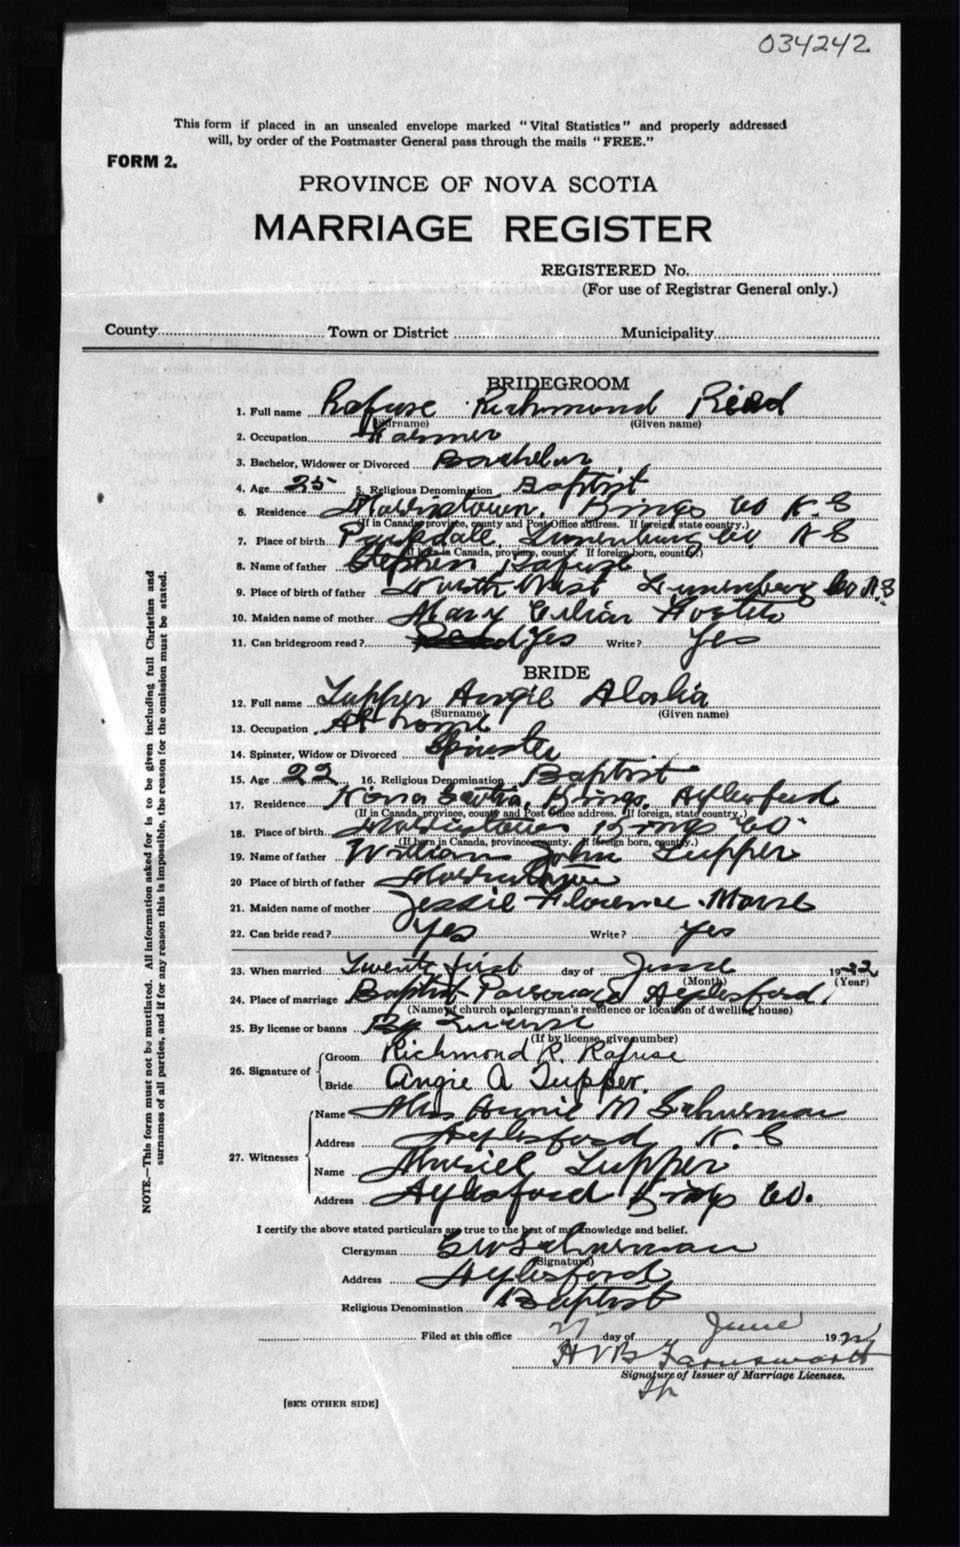 034242
This form if placed in an unsealed envelope marked "Vital Statistics" and properly addressed
will, by order of the Postmaster General pass through the mails "FREE."
FORM 2.
PROVINCE OF NOVA SCOTIA
MARRIAGE REGISTER
REGISTERED No.
(For use of Registrar General only.)
County Town or District Municipality
BRIDEGROOM
1. Full name Rafuse Richmond Reid
(Surname) (Given name)
2. Occupation Farmer
3. Bachelor, Widower or Divorced Bachelor
4. Age 25 5. Religious Denomination Baptist
6. Residence Morristown, Kings Co N.S
(If in Canada, province, county and Post Office address. If foreign, state country.)
7. Place of birth Parkdale, Lunenburg Co, N S
(If born in Canada, province, county. If foreign born, country.)
8. Name of father Stephen Rafuse
9. Place of birth of father North West Lunenburg Co N.S
10. Maiden name of mother Mary
11. Can bridegroom read? Yes Write? Yes
BRIDE
12. Full name Tupper Angie
(Surname) (Given name)
13. Occupation At home
14. Spinster, Widow or Divorced Spinster
15. Age 22 16. Religious Denomination Baptist
17. Residence Nova Scotia, Kings, Aylesford
(If in Canada, province, county and Post Office address. If foreign, state country.)
18. Place of birth Morristown Kings Co.
(If born in Canada, province county. If foreign born, country.)
19. Name of father William John Tupper
20 Place of birth of father Morristown
21. Maiden name of mother Jessie Florence Morse
22. Can bride read? Yes Write? Yes
23. When married Twenty first day of June 1922
(Month) (Year)
24. Place of marriage Baptist Parsonage Aylesford,
(Name of church or clergyman's residence or location of dwelling house)
25. By license or banns By License
(If by license, give number)
26. Signature of Groom Richmond R. Rafuse
Bride Angie A Tupper.
27. Witnesses Name Mrs Annie M Schurman
Address Aylesford, N. S
Name Muriel Tupper
Address Aylesford Kings Co.
I certify the above stated particulars are true to the best of my knowledge and belief.
Clergyman Schurman
(Signature)
Address Aylesford
Religious Denomination Baptist
Filed at this office 27 day of June 1922
H V B Farnsworth
Signature of Issuer of Marriage Licenses.
[SEE OTHER SIDE]
NOTE.—This form must not be mutilated. All information asked for is to be given including full Christian and
surnames of all parties, and if for any reason this is impossible, the reason for the omission must be stated.